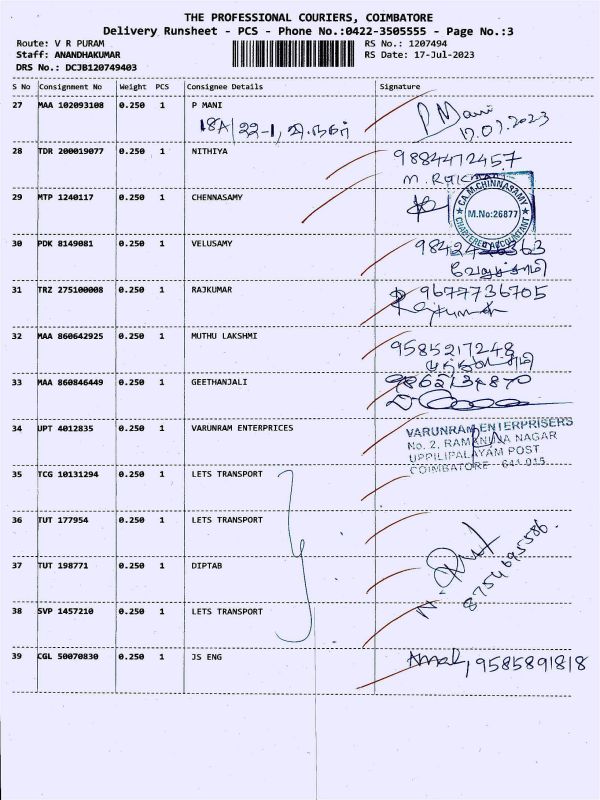 THE PROFESSIONAL COURIERS, COIMBATORE
Delivery Runsheet - PCS - Phone No.:0422-3505555 - Page No.:3
Route: V R PURAM RS No.: 1207494
Staff: ANANDHAKUMAR RS Date: 17-Jul-2023
DRS No.: DCJB120749403
S No Consignment No Weight PCS Consignee Details Signature
27 MAA 102093108 0.250 1 P MANI P Mani
18A/22-1, 17.07.2023
28 TDR 200019077 0.250 1 NITHIYA 9884472457
29 MTP 1240117 0.250 1 CHENNASAMY
CA.M.CHINNASAMY
M.No:26877
CHARTERED ACCOUNTANT
30 PDK 8149081 0.250 1 VELUSAMY
வேலுச்சாமி
31 TRZ 275100008 0.250 1 RAJKUMAR 9677736705
Rajkumar
32 MAA 860642925 0.250 1 MUTHU LAKSHMI 9585217248
33 MAA 860846449 0.250 1 GEETHANJALI 9862134870
34 UPT 4012835 0.250 1 VARUNRAM ENTERPRICES VARUNRAM ENTERPRISERS
No. 2, RAMANUJA NAGAR
UPPILIPALAYAM POST
COIMBATORE 641 015
35 TCG 10131294 0.250 1 LETS TRANSPORT
36 TUT 177954 0.250 1 LETS TRANSPORT
37 TUT 198771 0.250 1 DIPTAB
8754695586
38 SVP 1457210 0.250 1 LETS TRANSPORT
39 CGL 50070830 0.250 1 JS ENG Amal, 9585891818